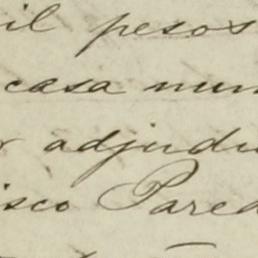 il pesos
casa num
r adjudi
isco Pared